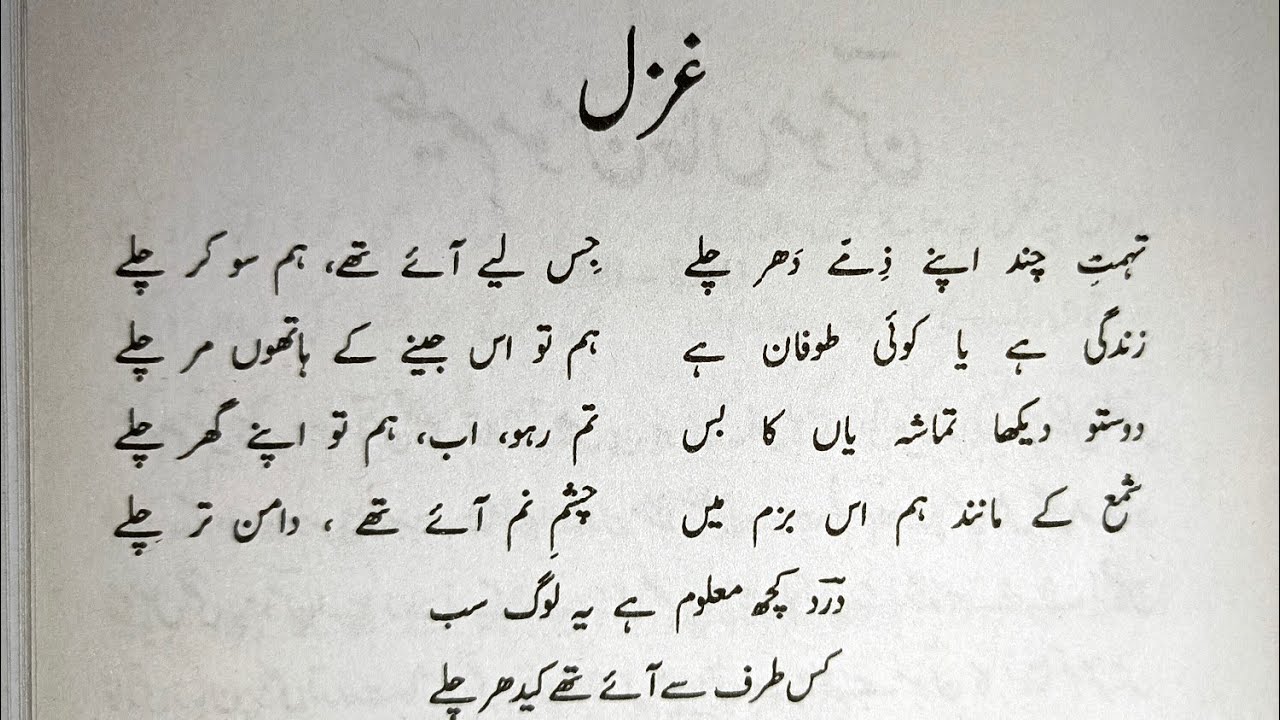 غزل
تہمتِ چند اپنے ذِمّے دَھر چلے جِس لیے آئے تھے، ہم سو کر چلے
زندگی ہے یا کوئی طوفان ہے ہم تو اس جینے کے ہاتھوں مر چلے
دوستو دیکھا تماشہ یاں کا بس تم رہو، اب، ہم تو اپنے گھر چلے
شمع کے مانند ہم اس بزم میں چشمِ نم آئے تھے ، دامن تر چلے
دردؔ کچھ معلوم ہے یہ لوگ سب
کس طرف سے آئے تھے کیدھر چلے